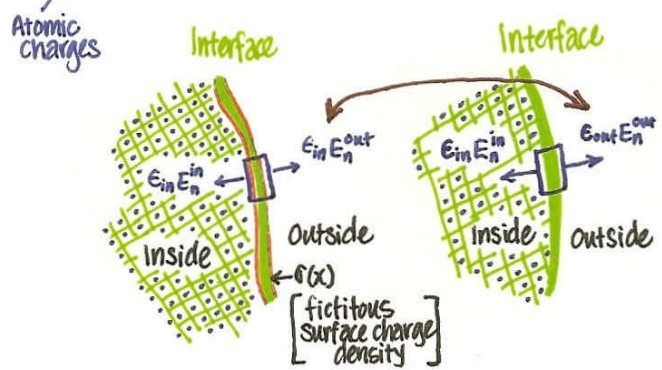 Atomic
charges
Interface
ϵin En^out
ϵin En^in
Inside
Outside
σ(x)
[fictitous
surface charge
density]
Interface
ϵout En^out
ϵin En^in
Inside
Outside